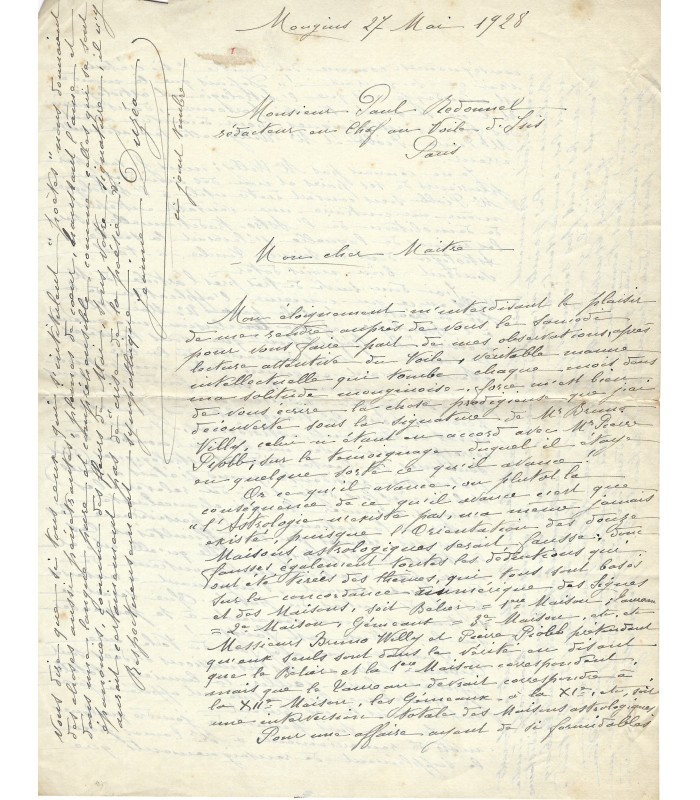 Mougins 27 Mai 1928
Monsieur Paul Redonnel
rédacteur en Chef au Voile d'Isis
Paris
Mon cher Maître
Mon éloignement m'interdisant le plaisir
de me rendre auprès de vous le samedi
pour vous faire part de mes observations, après
lecture attentive du Voile, véritable manne
intellectuelle qui tombe chaque mois dans
ma solitude mouginoise, force m'est bien
de vous écrire la chose prodigieuse que j'ai
découverte sous la signature de Mr Bruno
Willy, celui-ci étant en accord avec Mr Pierre
Piobb, sur le témoignage duquel il étaye
en quelque sorte ce qu'il avance !
Or ce qu'il avance, ou plutôt la
conséquence de ce qu'il avance c'est que
"l'Astrologie n'existe pas, n'a même jamais
existé, puisque l'Orientation des douze
Maisons astrologiques serait fausse, donc
fausses également toutes les déductions qui
ont été tirées des thèmes, qui tous sont basés
sur la concordance numérique des Signes
et des Maisons, soit Bélier = 1re Maison, Taureau
= 2e Maison, Gémeaux = 3e Maison, etc, et
Messieurs Bruno Willy et Pierre Piobb prétendent
qu'eux seuls sont dans la vérité en disant
que le Bélier et la 1ere Maison correspondent,
mais que le Taureau devrait correspondre à
la XIIe Maison, les Gémeaux à la XIe, etc, soit
une interversion totale des Maisons astrologiques
Pour une affaire ayant de si formidables
vous dire que si tous ceux qui s'intitulent "poètes" nous donnaient
des choses aussi pénétrantes, pleines de cœur, haussant l'âme et
dans une langue pure et compréhensible, comme celles qui se sont
épanouies, comme des fleurs de Mai sous votre signature, il n'y
aurait certainement pas de "crise de la poésie".
Respectueusement sympathique
Jeanne Duzéa
ci-joint timbre